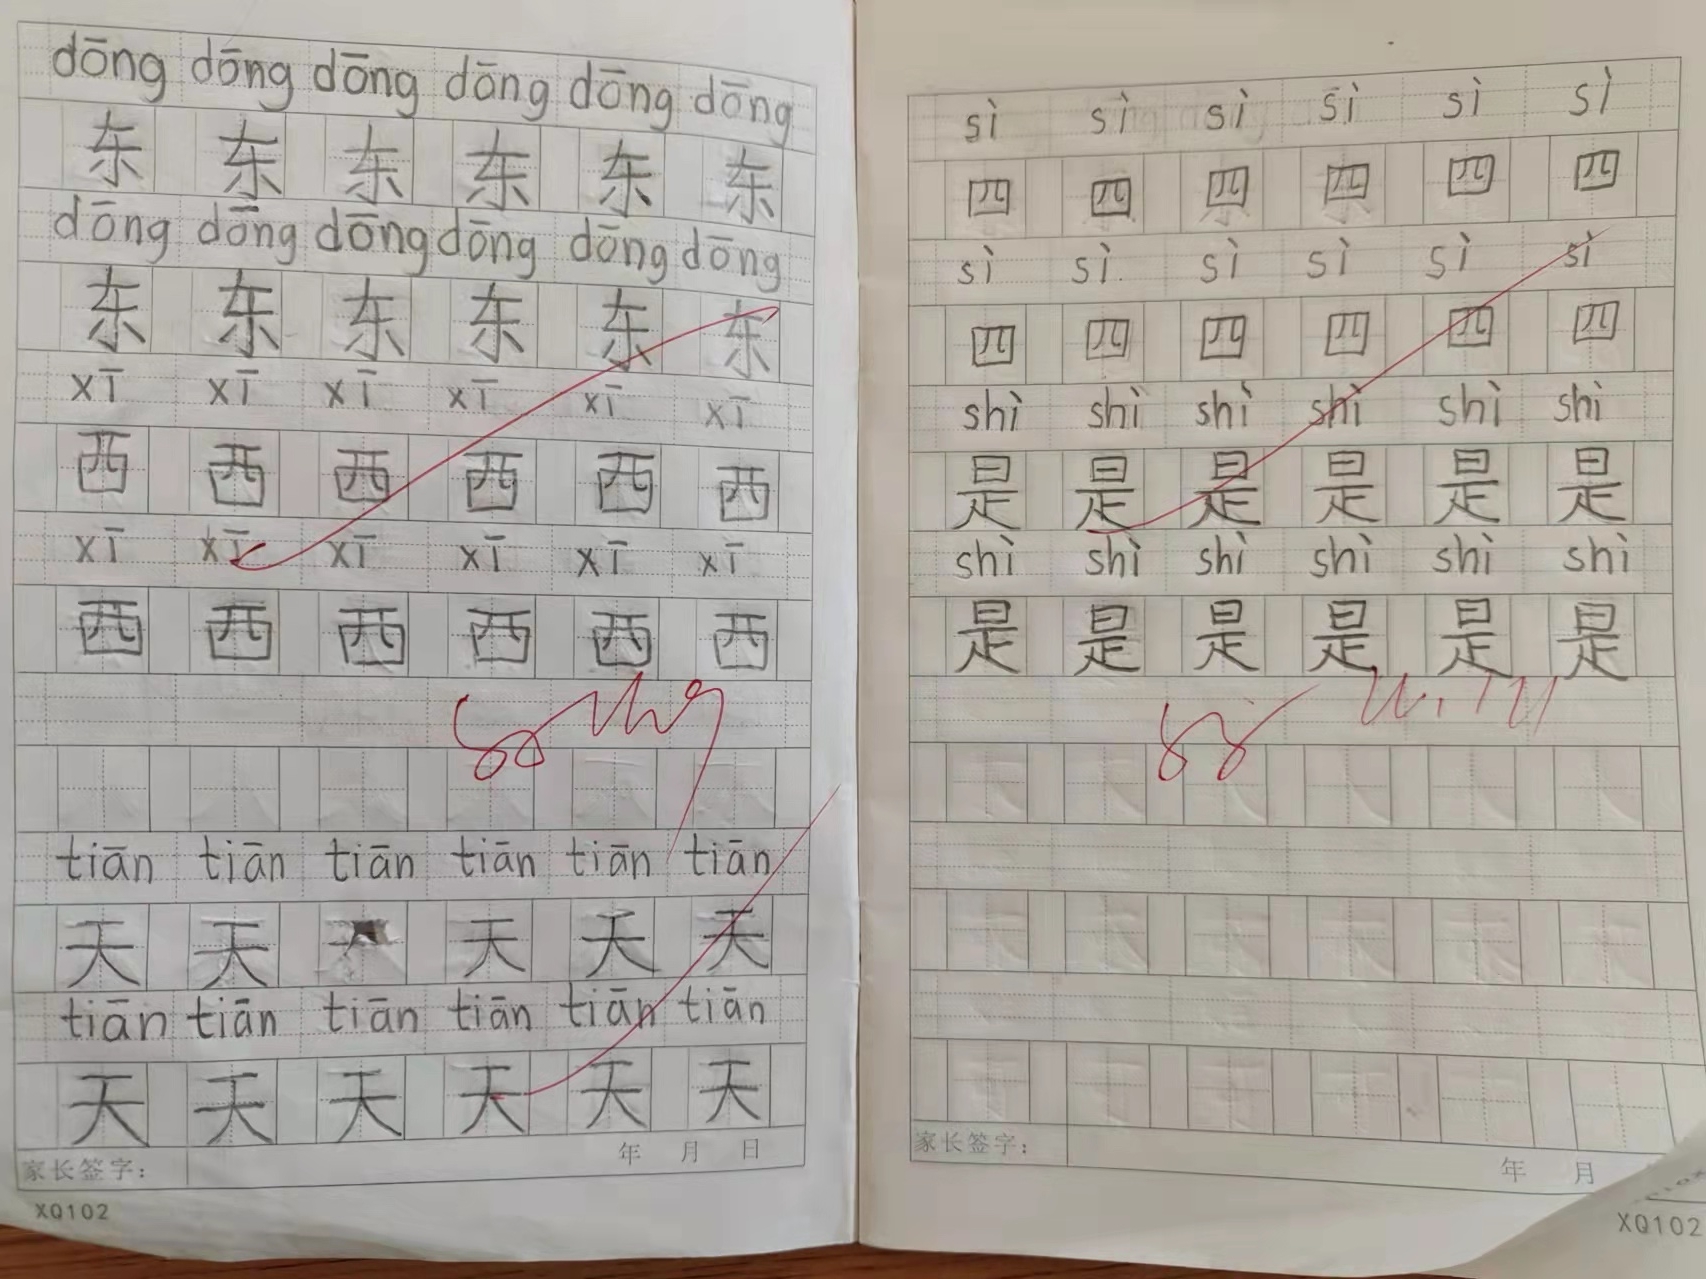 dōng dōng dōng dōng dōng dōng
东 东 东 东 东 东
dōng dōng dōng dōng dōng dōng
东 东 东 东 东 东
xī xī xī xī xī xī
西 西 西 西 西 西
xī xī xī xī xī xī
西 西 西 西 西 西
tiān tiān tiān tiān tiān tiān
天 天 天 天 天
tiān tiān tiān tiān tiān tiān
天 天 天 天 天 天
年 月 日
家长签字：
XQ102
sì sì sì sì sì sì
四 四 四 四 四 四
sì sì sì sì sì sì
四 四 四 四 四 四
shì shì shì shì shì shì
是 是 是 是 是 是
shì shì shì shì shì shì
是 是 是 是 是 是
家长签字：
年 月
XQ102